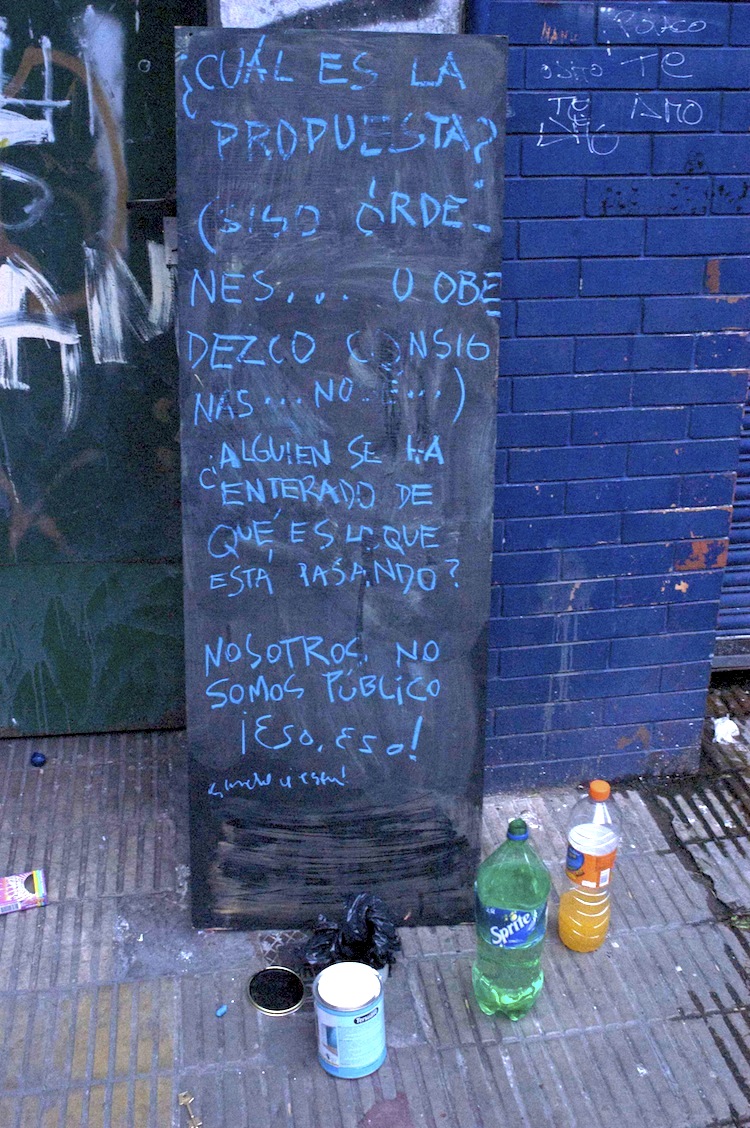 ¿CUÁL ES LA
PROPUESTA?
(SIGO ÓRDE-
NES... U OBE
DEZCO CONSIG
NAS... NO SÉ...)
¿ALGUIEN SE HA
ENTERADO DE
QUÉ ES LO QUE
ESTÁ PASANDO?
NOSOTROS, NO
SOMOS PÚBLICO
¡ESO, ESO!
TE
TE AMO
Sprite
Tersuave